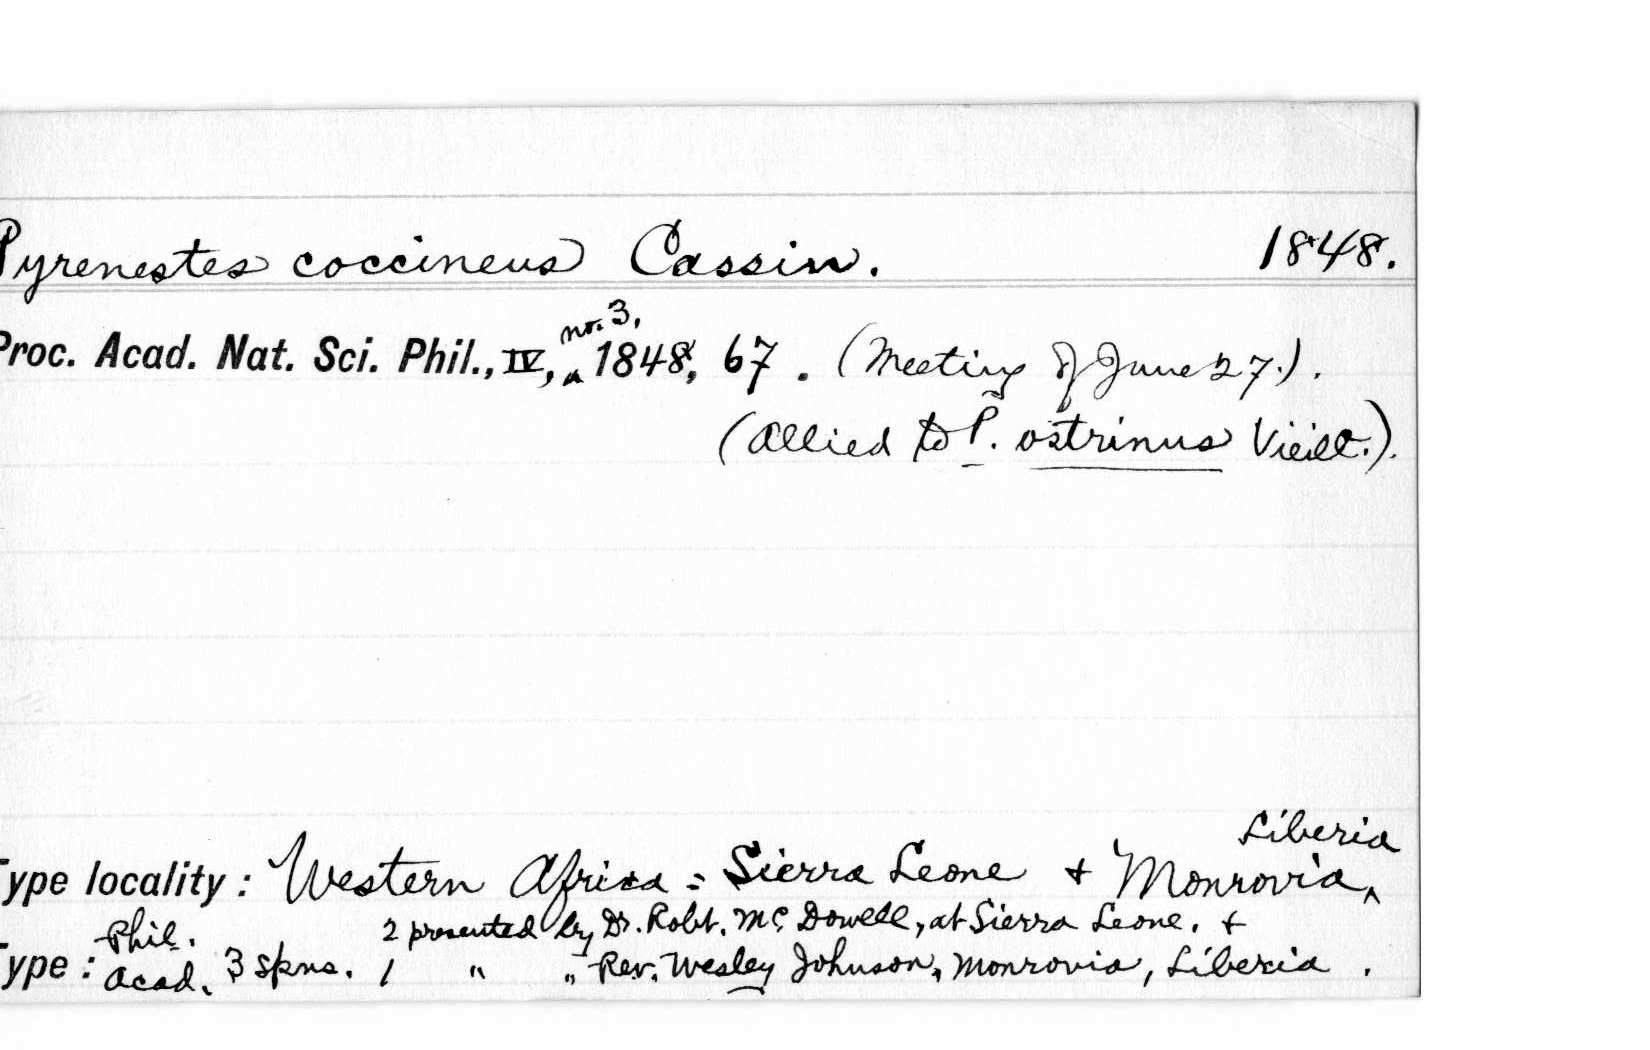 Pyrenestes coccineus Cassin. 1848.
Proc. Acad. Nat. Sci. Phil., IV, no. 3, 1848, 67. (Meeting of June 27.).
(Allied to P. ostrinus Vieill.).
Type locality: Western Africa: Sierra Leone + Monrovia, Liberia
Type: Phil. Acad. 3 spns. 2 presented by Dr. Robt. McDowell, at Sierra Leone. +
1 " " Rev. Wesley Johnson, Monrovia, Liberia.